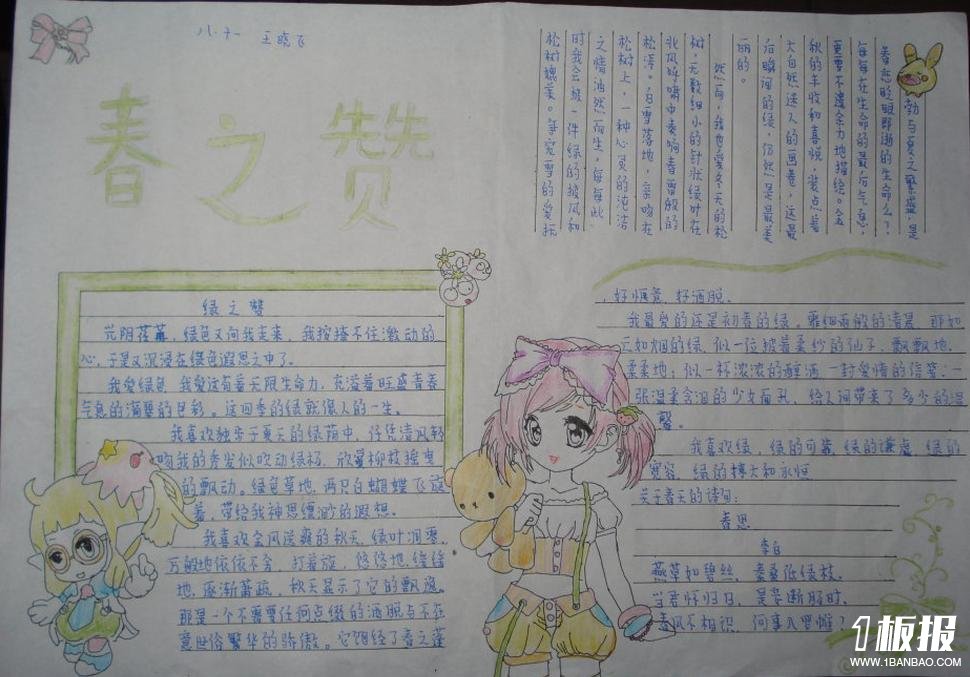 八.十一 王晓飞
春之赞
绿之赞
光阴荏苒，绿色又向我走来，我按捺不住激动的
心，于是又沉浸在绿色遐思之中了。
我爱绿色，我爱这有着无限生命力，充溢着旺盛青春
气息的满艳的色彩。这四季的绿就像人的一生。
我喜欢独步于夏天的绿荫中，任凭清风轻
吻我的秀发似吹动绿杨，欣赏柳枝摇曳
的飘动。绿色草地，两只白蝴蝶飞旋
着，带给我神思缥缈的遐想。
我喜欢金风送爽的秋天，绿叶凋零，
万般地依依不舍，打着旋，悠悠地、缓缓
地，逐渐萧疏，秋天显示了它的飘逸。
那是一个不需要任何点缀的洒脱与不在
意世俗繁华的骄傲。它饱经了春之蓬
勃与夏之繁盛，是
春恋眨眼即逝的生命么？
每每在生命的最后气息，
更要不遗余力地描绘。金
秋的丰收和喜悦，装点着
大自然迷人的画卷，这最
后瞬间的绿，仍然是最美
丽的。
然而，我也爱冬天的松
树，无数细小的针状绿叶在
北风呼啸中奏响春雷般的
松涛。白雪落地，亲吻在
松树上，一种心灵的纯洁
之情油然而生，每每此
时我会披一件绿的披风和
松树媲美。争宠雪的爱抚
，好惬意，好洒脱。
我最爱的还是初春的绿。雅细雨般的清晨，那如
云如烟的绿，似一位披着柔纱的仙子，飘飘地，
柔柔地，似一杯浓浓的醇酒，一封爱情的信笺；一
张温柔含泪的少女面孔，给人间带来了多少的温
馨。
我喜欢绿，绿的可靠，绿的谦虚，绿的
宽容，绿的博大和永恒
关于春天的诗句：
春思
李白
燕草如碧丝，秦桑低绿枝。
当君怀归日，是妾断肠时。
春风不相识，何事入罗帷？
1板报
WWW.1BANBAO.COM